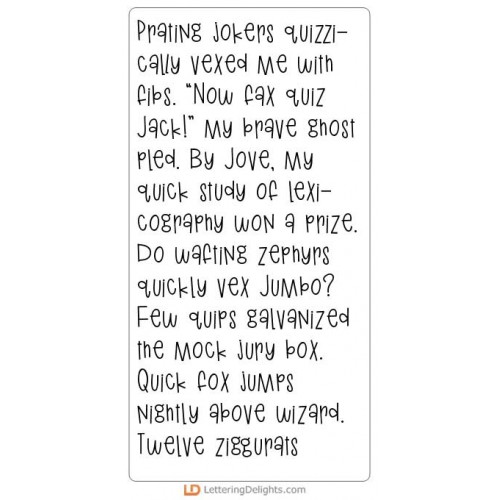 Prating jokers quizzi-
cally vexed me with
fibs. "Now fax quiz
Jack!" my brave ghost
pled. By Jove, my
quick study of lexi-
cography won a prize.
Do wafting zephyrs
quickly vex Jumbo?
Few quips galvanized
the mock jury box.
Quick fox jumps
nightly above wizard.
Twelve ziggurats
LD LetteringDelights.com